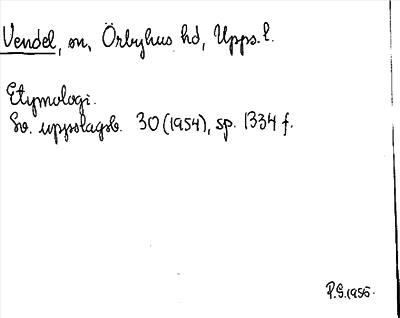 Vendel, sn, Örbyhus hd, Upps. l.
Etymologi.
Sv. uppslagsb. 30 (1954), sp. 1334 f.
P.G. 1956.